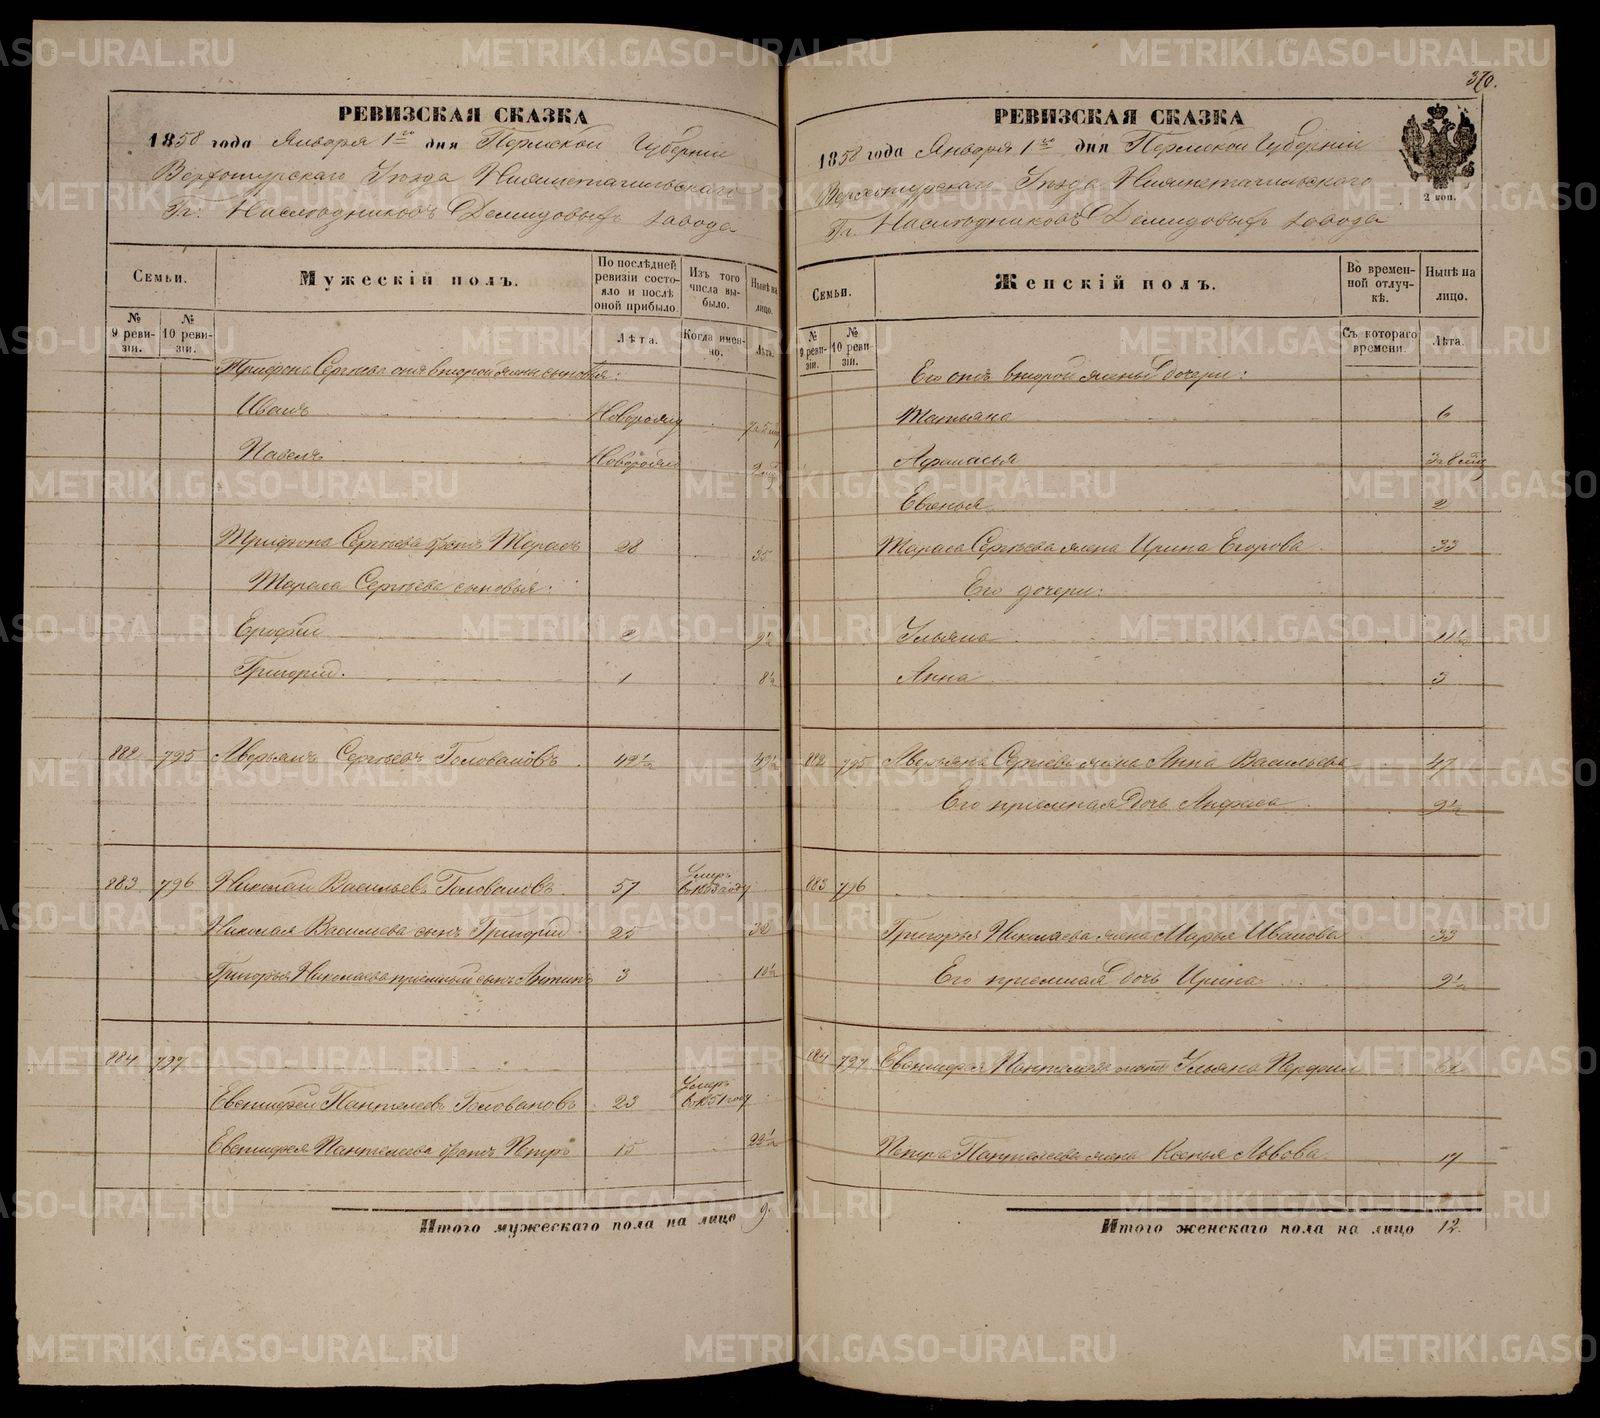 РЕВИЗСКАЯ СКАЗКА
1858 года Января 1го дня Пермской Губерніи
Верхотурскаго Уѣзда Нижнетагильскаго
Гг. Наслѣдниковъ Демидовыхъ завода
Семьи.
Мужескій полъ.
По послѣдней ревизіи состояло и послѣ оной прибыло.
Изъ того числа выбыло.
Нынѣ на лицо.
№ 9 ревизіи.
№ 10 ревизіи.
Лѣта.
Когда именно.
Лѣта.
Трифона Сергѣева отъ второй жены сыновья:
Иванъ Новорожд
Павелъ Новорожд
Трифона Сергѣева братъ Тарасъ 28 35
Тараса Сергѣева сыновья:
Ерофей 2 9½
Григорій. 1 8½
882 795 Аверьянъ Сергѣевъ Головановъ 42½ 49½
883 796 Николай Васильевъ Головановъ 57 Умеръ въ 1853 году
Николая Васильева сынъ Григорій 25 32
Григорья Николаева пріемный сынъ Антипъ 3 10½
884 797
Евстифей Пантелеевъ Головановъ 23 Умеръ въ 1851 году
Евстифея Пантелеева братъ Петръ 15 22½
Итого мужескаго пола на лицо 9.
370.
РЕВИЗСКАЯ СКАЗКА
1858 года Января 1го дня Пермской Губерніи
Верхотурскаго Уѣзда Нижнетагильскаго
Гг. Наслѣдниковъ Демидовыхъ завода
2 коп.
Семьи.
Женскій полъ.
Во временной отлучкѣ.
Нынѣ на лицо.
№ 9 ревизіи.
№ 10 ревизіи.
Съ котораго времени.
Лѣта.
Его отъ второй жены дочери:
Татьяна 6
Афанасья
Евгенья 2
Тараса Сергѣева жена Ирина Егорова 33
Его дочери:
Ульяна 11½
Анна 3
882 795 Аверьяна Сергѣева жена Анна Васильева 47
Его пріемная дочь 9½
883 796
Григорья Николаева жена Марья Иванова 33
Его пріемная дочь Ирина 9½
884 797 Евстифея Пантелеева мать Ульяна
Петра Пантелеева жена Ксенья Львова 17
Итого женскаго пола на лицо 12.
METRIKI.GASO-URAL.RU